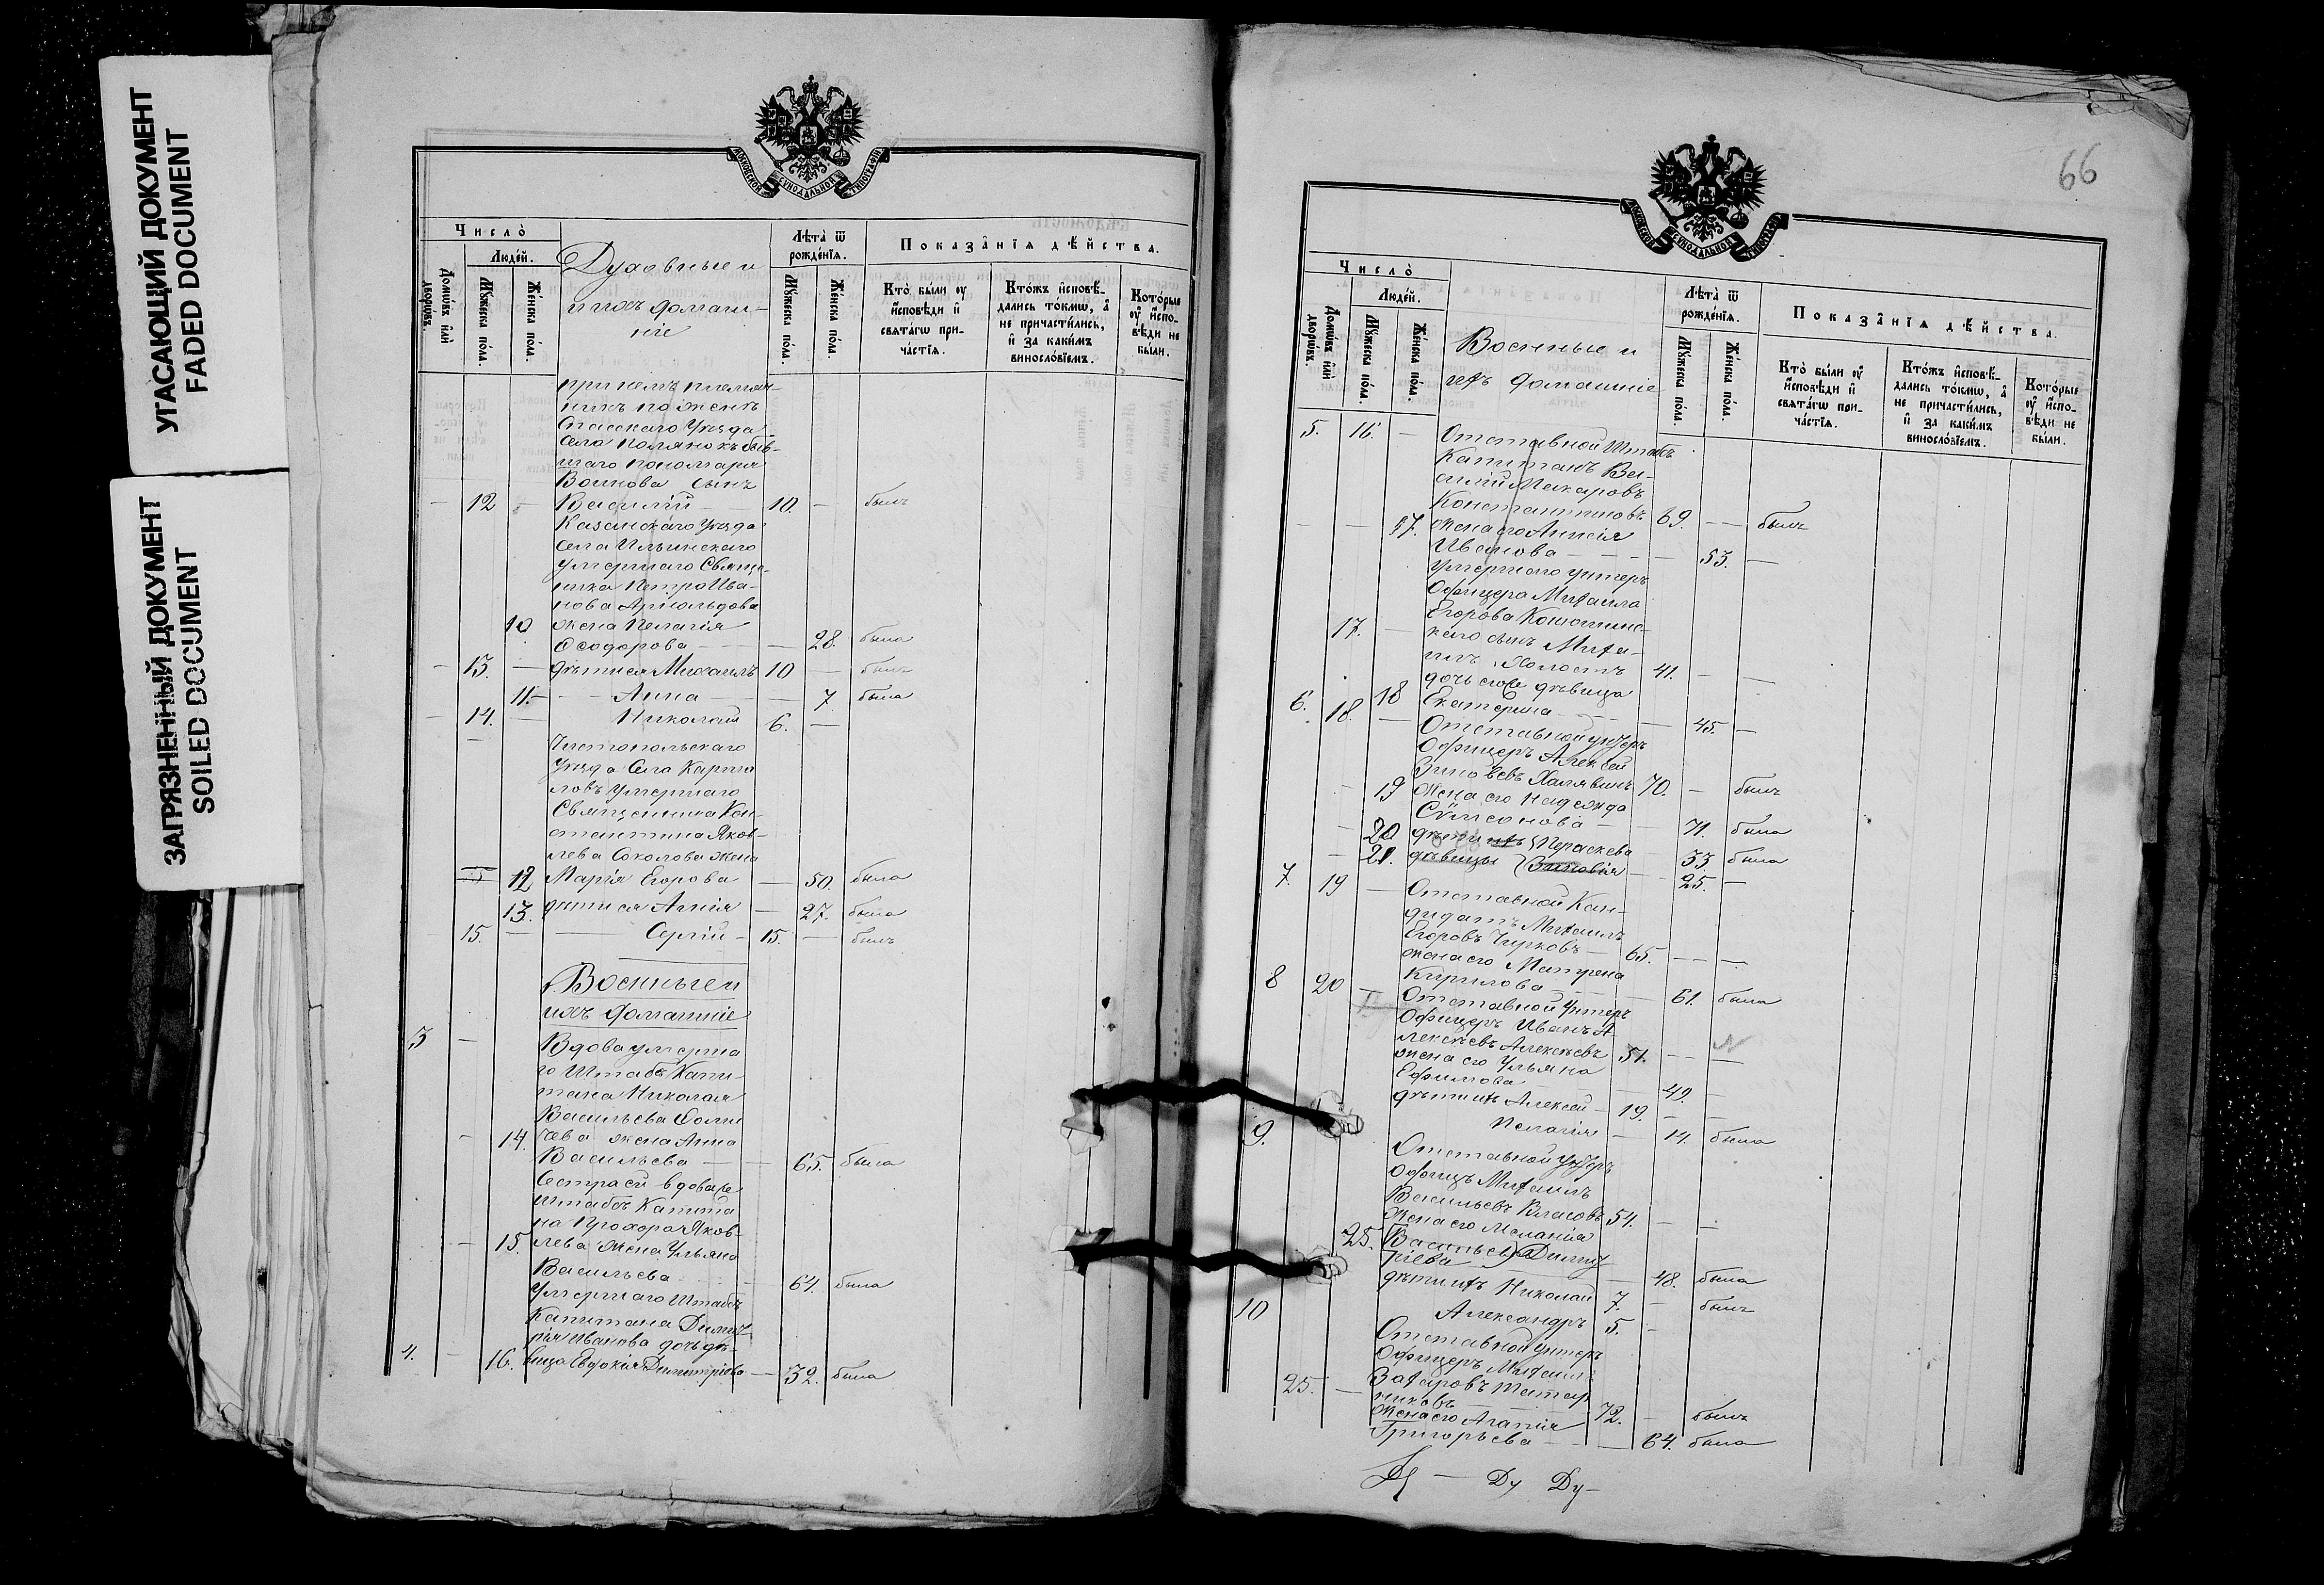 УГАСАЮЩИЙ ДОКУМЕНТ
FADED DOCUMENT
ЗАГРЯЗНЕННЫЙ ДОКУМЕНТ
SOILED DOCUMENT
МОСКОВСКОЙ СѴНОДАЛЬНОЙ ТИПОГРАФІИ
Число̀
Людей.
Домѡвъ и҆лѝ дворѡвъ.
Мꙋжеска пола.
Женска пола.
Духовные и
и ихъ домаш-
ніе
Лѣта̀ ѿ рожденїѧ.
Мꙋжеска пола.
Женска пола.
Показанїѧ дѣйства.
Кто̀ были оу҆ и҆сповѣди и҆ свѧтагѡ причастїѧ.
Ктожъ и҆сповѣдались токмѡ, а҆ не причастились, и҆ за какимъ винословїемъ.
Которые оу҆ и҆сповѣди не были.
при немъ племян-
никъ по женѣ
Спасскаго Уѣзда
села Полянокъ быв-
шаго пономаря
Волкова сынъ
— 12 — Василій — 10. — былъ
Казанскаго Уѣзда
села Ильинскаго
умершаго Священ-
ника Петра Ива-
нова Арнольдова
10 жена Пелагія
Ѳеодорова — — 28. была
— 13. — дѣти ея Михаилъ 10 — былъ
11. — Анна — — 7 была
— 14. — Николай 6. —
Чистопольскаго
Уѣзда Села Карга
ловъ умершаго
Священника Кон-
стантина Яков-
лева Соколова жена
12 Марія Егорова — 50. была
13. дѣти ея Агнія — 27. была
15. — Сергій — 15. — былъ
Военные и
ихъ домашніе
3 — Вдова умерша
го Штабсъ Капи-
тана Николая
Васильева
— 14. жена Анна
Васильева — — 65. была
Сестра ей вдова
штабсъ Капита
на Прохора Яков-
— 15. лева жена Ульяна
Васильева — 64. была
Умершаго Штабсъ
Капитана Димит
рія Иванова дочь дѣ-
4. — 16. вица Евдокія Димитріева — 32. была
66
МОСКОВСКОЙ СѴНОДАЛЬНОЙ ТИПОГРАФІИ
Число̀
Людей.
Домѡвъ и҆лѝ дворѡвъ.
Мꙋжеска пола.
Женска пола.
Военные и
ихъ домашніе
Лѣта̀ ѿ рожденїѧ.
Мꙋжеска пола.
Женска пола.
Показанїѧ дѣйства.
Кто̀ были оу҆ и҆сповѣди и҆ свѧтагѡ причастїѧ.
Ктожъ и҆сповѣдались токмѡ, а҆ не причастились, и҆ за какимъ винословїемъ.
Которые оу҆ и҆сповѣди не были.
5. 16. — Отставной Штабсъ
Капитанъ Ва-
силій Макаровъ
Константиновъ 69. — былъ
— — 17. жена его Анисія
Иванова — — — 53. —
Умершаго унтеръ
Офицера Михаила
Егорова
17. — сынъ Миха-
илъ холостъ 41. — —
дочь его дѣвица
18 Екатерина — — 45. —
6. 18. — Отставной унтеръ
Офицеръ Алексей
Зиновьевъ Халявинъ 70. — былъ
— 19 жена его Надежда
Сѵмеонова — — 71. была
— 20 дѣти ихъ Параскева — 33. была
— 21. дѣвицы Зиновія — 25. —
7. 19 — Отставной Кан-
дидатъ Михаилъ
Егоровъ Чирковъ — 65. — —
жена его Матрена
Кирилова — 61. была
8 20 — Отставной Унтеръ
Офицеръ Иванъ А
лексѣевъ Алексѣевъ 51. — —
жена его Ульяна
Ефимова — — 42. —
дѣти ихъ Алексей — 19. — —
Пелагія — 14. была
9. Отставной унтеръ
офицъ Михаилъ
Васильевъ Власовъ 54. — —
Жена его Меланія
25. Васильева Димит
ріева — 48. была
дѣти ихъ Николай 7. — былъ
Александръ 5. —
10 Отставной унтеръ
Офицеръ Михаилъ
25. — Захаровъ Татар
никовъ — 72. — былъ
Жена его Агапія
Григорьева — — 64. была
Ду Ду-